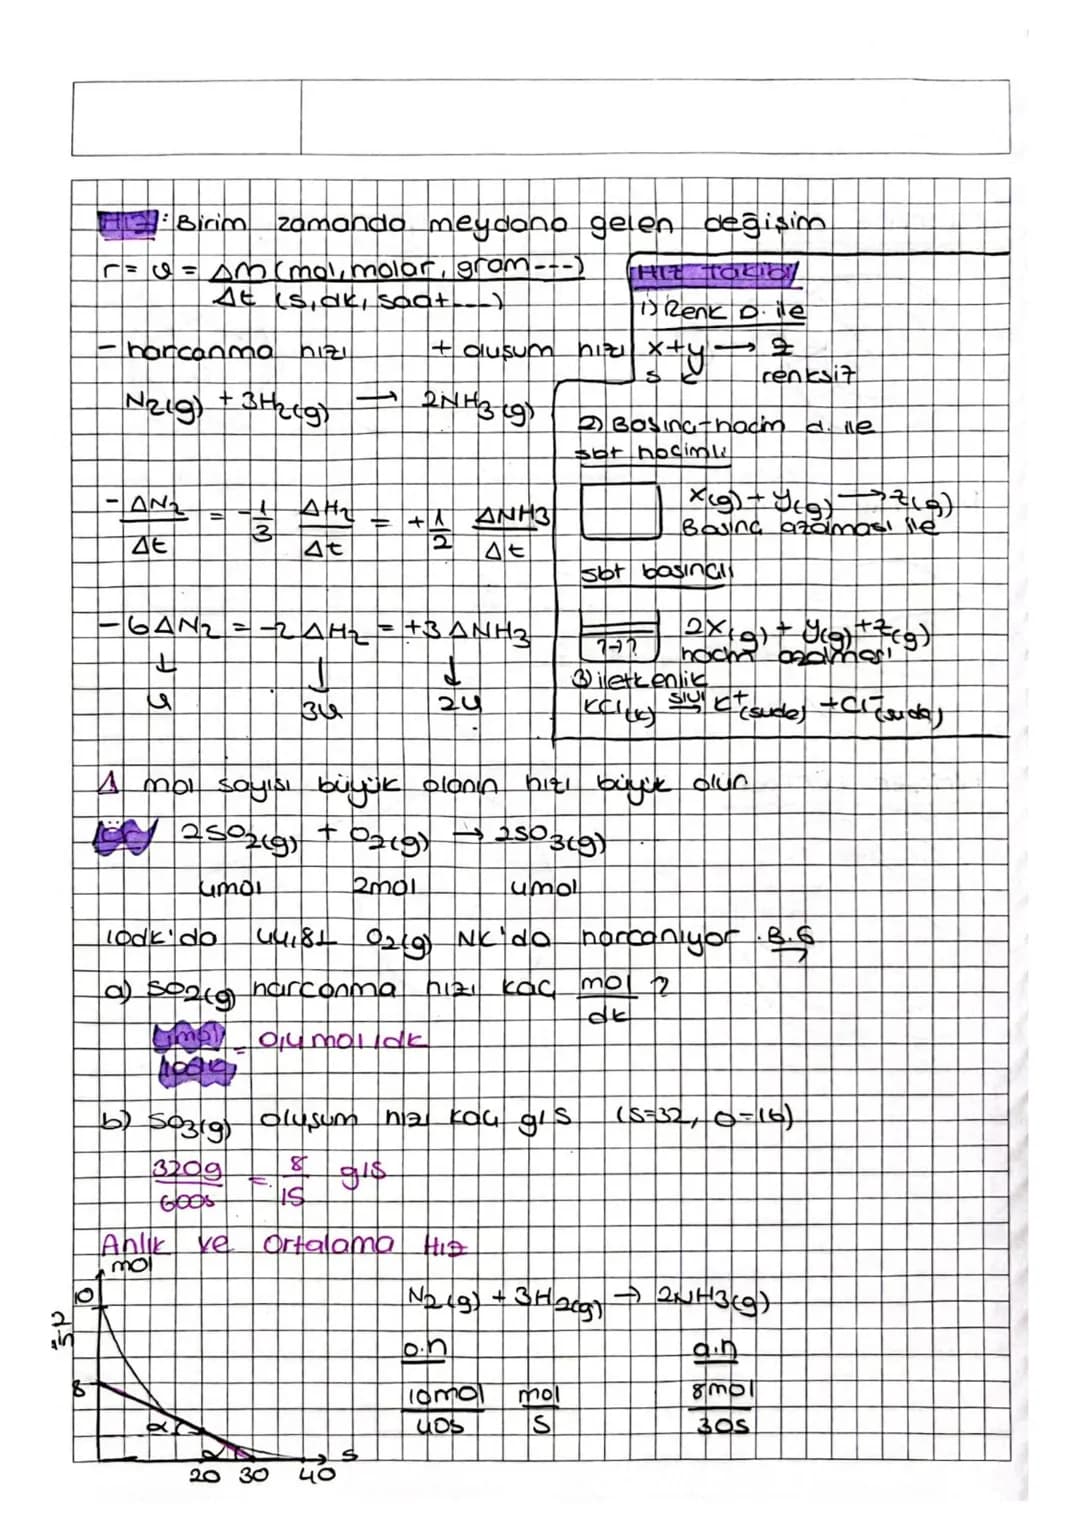 HIZ: Birim zamanda meydana gelen değişim
r = υ = Δm (mol, molar, gram---)
Δt (s, dk, saat---)
- harcanma hızı + oluşum hızı
N2(g) + 3H2(g) → 2NH3(g)
-ΔN2 = -1 ΔH2 = +1 ΔNH3
Δt 3 Δt 2 Δt
-6ΔN2 = -2ΔH2 = +3ΔNH3
↓ ↓ ↓
υ 3υ 2υ
HIZ Takibi
1) Renk D. ile
x+y → z
s renksiz
2) Basınç-hacim d. ile
sbt hacimli
X(g) + Y(g) → Z(g)
Basınç azalması ile
sbt basınçlı
2X(g) + Y(g) + Z(g)
hacim azalması
3) iletkenlik
KCl(k) sıvı K+(suda) + Cl-(suda)
Δ mol sayısı büyük olanın hızı büyük olur
ÖR/ 2SO2(g) + O2(g) → 2SO3(g)
4mol 2mol 4mol
10dk'da 44,8L O2(g) NK'da harcanıyor. B.G
a) SO2(g) harcanma hızı kaç mol ?
dk
4mol = 0,4 mol/dk
10dk
b) SO3(g) oluşum hızı kaç g/s (S=32, O=16)
320g = 8 g/s
600s 15
Anlık ve Ortalama Hız
mol
10
8
α
α
20 30 40 s
N2(g) + 3H2(g) → 2NH3(g)
o.h a.h
10mol mol 8mol
40s s 30s